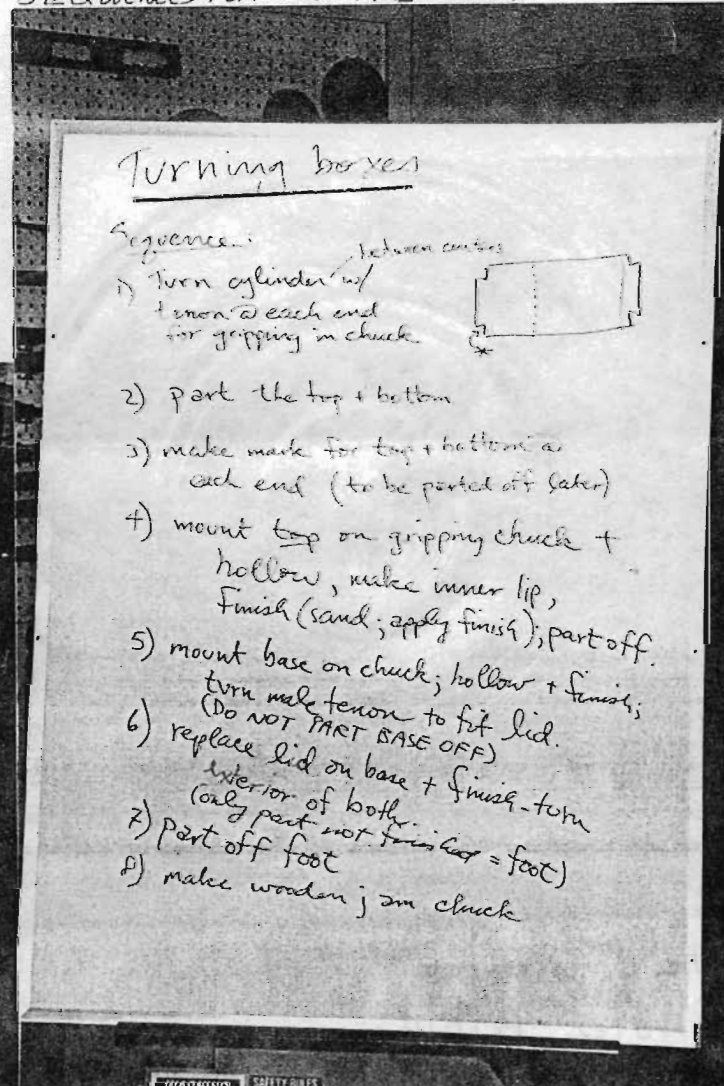 Turning boxes
Sequence:
between centers
1) Turn cylinder w/
tenon @ each end
for gripping in chuck
2) part the top + bottom
3) make mark for top + bottom @
each end (to be parted off later)
4) mount top on gripping chuck +
hollow, make inner lip,
finish (sand; apply finish); part off.
5) mount base on chuck; hollow + finish;
turn male tenon to fit lid.
(DO NOT PART BASE OFF)
6) replace lid on base + finish-turn
exterior of both.
(only part not finished = foot)
7) part off foot
8) make wooden jam chuck
SAFETY RULES